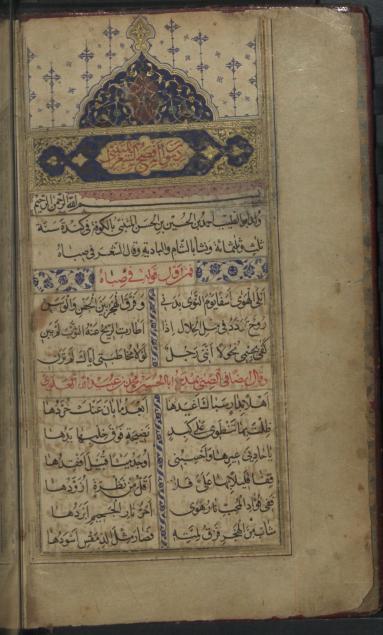 ديوان افصح الشعرا المتنبي
بسم الله الرحمن الرحيم
ولد ابو الطيب احمد بن الحسين بن الحسن المتنبي بالكوفة في كندة سنة
ثلث وثلثمائة ونشأ بالشام والبادية وقال الشعر في صباه
فمن اول قوله في صباه
ابلى الهوى اسفا يوم النوى بدني وفرق الهجر بين الجفن والوسن
روح تردد في مثل الخلال اذا اطارت الريح عنه الثوب لم يبن
كفى بجسمي نحولا انني رجل لولا مخاطبتي اياك لم ترني
وقال ايضا في الصبى يمدح ابا الحسين محمد بن عبيد الله العلوي
اهلا بدار سباك اغيدها ابعد ما بان عنك خردها
ظلت بها تنطوي على كبد نضيجة فوق خلبها يدها
يا حاديي عيرها واحسبني اوجد ميتا قبيل افقدها
قفا قليلا بها علي فلا اقل من نظرة ازودها
ففي فؤاد المحب نار هوى احر نار الجحيم ابردها
شاب من الهجر فرق لمته فصار مثل الدمقس اسودها